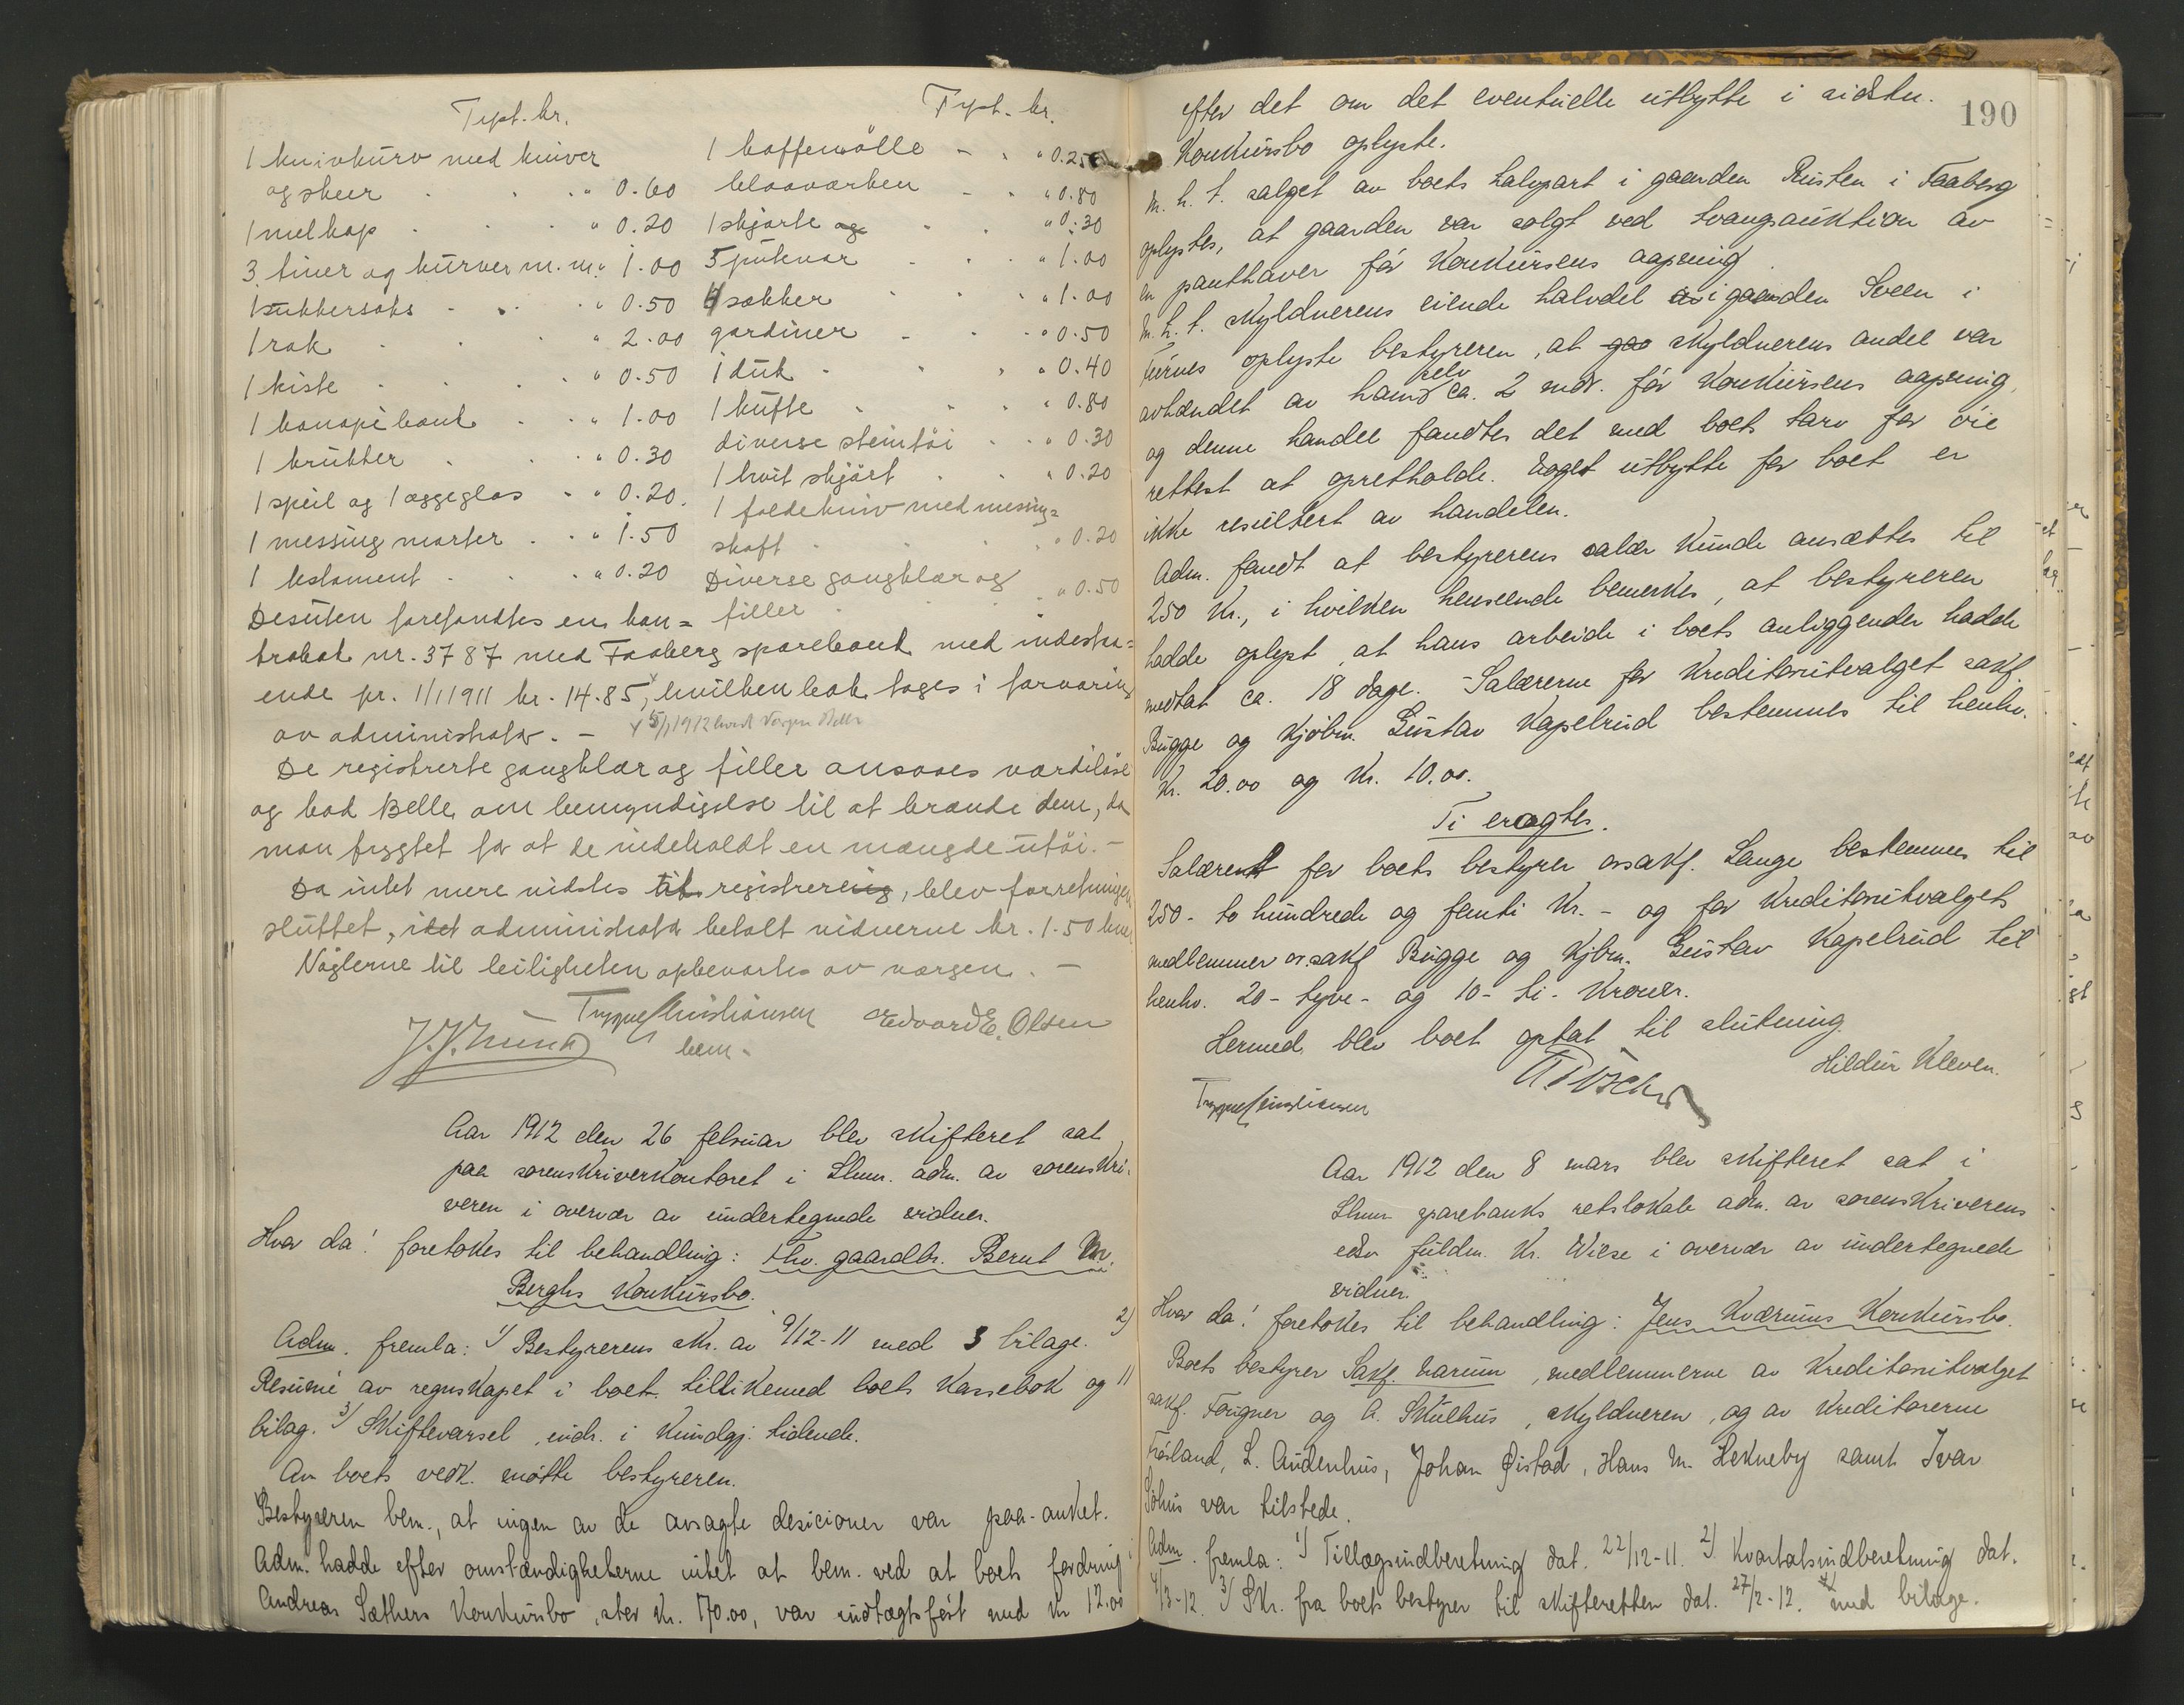 Trpt. kr.
1 knivkurv med kniver
og skeer . . . " 0.60
1 melkop . . . " 0.20
3 tiner og kurver m.m. " 1.00
1 sukkersaks . . . " 0.50
1 rok . . . " 2.00
1 kiste . . . " 0.50
1 kanapébænk . . " 1.00
1 krukker . . . " 0.30
1 speil og 1 æggeglas . . " 0.20.
1 messing morter . . " 1.50
1 testament . . . " 0.20
Trpt. kr.
1 kaffemølle - . " 0.25
blaavarken - . " 0.80
1 skjørte og . . " 0.30
5 putevar . . . " 1.00
4 sækker . . . " 1.00
gardiner - . - " 0.50
1 duk . . . " 0.40
1 kufte . . . " 0.80
diverse steintöi . . " 0.30
1 hvit skjört . . " 0.20
1 foldekniv med messing=
skaft . . . " 0.20
Diverse gangklær og
filler . . . " 0.50
Desuten forefandtes en kon=
trabok nr. 3787 med Faaberg sparebank med indestaa=
ende pr. 1/1 1911 kr. 14.85, hvilken bok toges i forvaring
av administrator. -
De registrerte gangklær og filler ansaaes værdiløse
og bad Belle om bemyndigelse til at brænde dem, da
man frygtet for at de indeholdt en mængde utöi. -
Da intet mere vidstes til registrering, blev forretningen
sluttet, idet administrator betalt vidnerne kr. 1.50 hver
Nøglerne til leiligheten opbevartes av værgen. -
Trygve Christiansen Edvard E. Olsen
bem.
Aar 1912 den 26 februar blev skifteret sat
paa sorenskriverkontoret i Lhmr. adm. av sorenskri-
veren i overvær av undertegnede vidner.
Hvor da! foretokes til behandling: Fhv. gaardbr. Bernt M.
Berghs konkursbo.
Adm. fremla: 1) Bestyrerens skr. av 9/12-11 med 3 bilage. 2)
Resumé av regnskapet i boet tillikemed boets kassebok og 11
bilag. 3) Skiftevarsel, indr. i Kundgj. tidende.
Av boets vedk. møtte bestyreren.
Bestyreren bem., at ingen av de avsagte desicioner var paa-anket.
Adm. hadde efter omstændigheterne intet at bem. ved at boets fordring i
Andreas Sæthers konkursbo, stor kr. 170.00, var indtægtsført med kr 12.00
190
efter det om det eventuelle utbytte i sidstn.
konkursbo oplyste.
M. h. t. salget av boets halvpart i gaarden Rusten i Faaberg
oplystes, at gaarden var solgt ved tvangsauktion av
en panthaver før konkursens aapning.
M. h. t. skyldnerens eiende halvdel av i gaarden Sveen i
Furnes oplyste bestyreren, at gaa skyldnerens andel var
avhændet av ham selv ca. 2 mdr. før konkursens aapning,
og denne handel fandtes det med boets tarv for øie
rettest at opretholde. Noget utbytte for boet er
ikke resultert av handelen.
Adm. fandt at bestyrerens salær kunde ansættes til
250 kr., i hvilken henseende bemerkes, at bestyreren
hadde oplyst, at hans arbeide i boets anliggender hadde
medtat ca. 18 dage. - Salærerne for kreditorutvalget sakf.
Bugge og kjøbm. Gustav Kapelrud bestemmes til henhv.
kr. 20.00 og kr. 10.00.
Ti eragtes.
Salæret for boets bestyrer o.r.sakf. Lange bestemmes til
250 - to hundrede og femti kr. - og for kreditorutvalgets
medlemmer o.r.sakf Bugge og kjbm. Gustav Kapelrud til
henhv. 20 - tyve - og 10 - ti - kroner.
Hermed blev boet optat til slutning.
Hildur Kleven.
Trygve Christiansen
Aar 1912 den 8 mars blev skifteret sat i
Lhmr sparebanks retslokale adm. av sorenskriverens
edsv fuldm. Kr. Wiese i overvær av undertegnede
vidner.
Hvor da! foretokes til behandling: Jens Kværnums konkursbo.
Boets bestyrer Sakf. Narum, medlemmerne av kreditorutvalget
sakf. Fougner og A. Skulhus, skyldneren, og av kreditorerne
Frösland, L. Audenhus, Johan Øistad, Hans M. Hekneby samt Ivar
var tilstede.
Adm. fremla: 1) Tillægsindberetning dat. 22/12-11. 2) Kvartalsindberetning dat.
4/3-12. 3) Skr. fra boets bestyrer til skifteretten dat. 27/2-12. 4) med bilage.